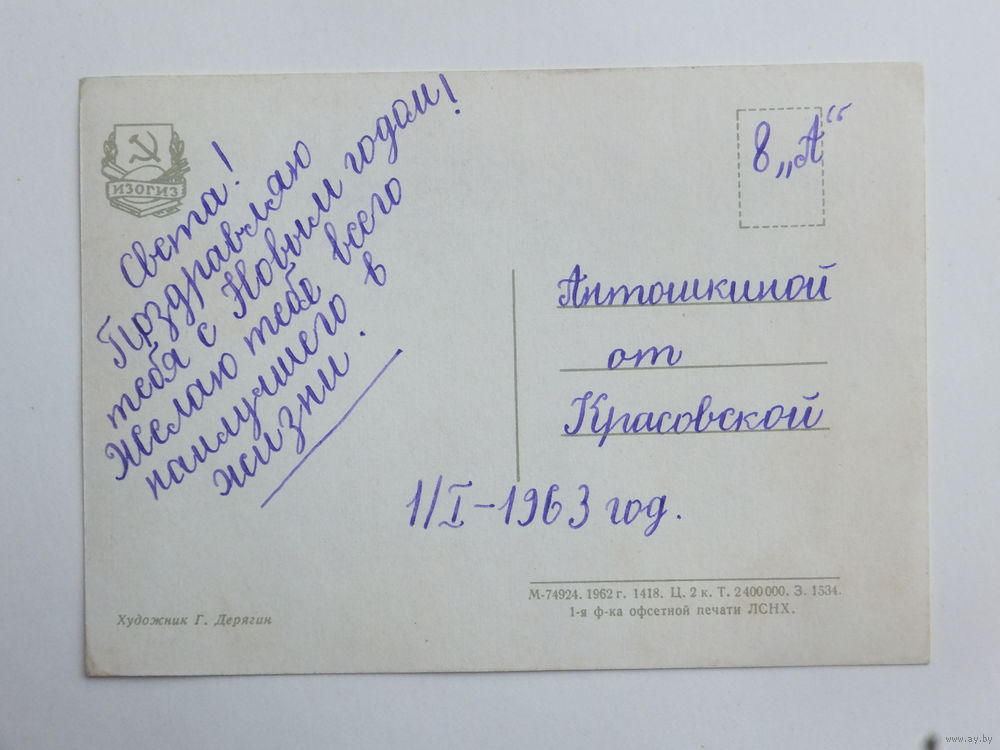 ИЗОГИЗ
Света!
Поздравляю
тебя с Новым годом!
Желаю тебе всего
наилучшего в
жизни.
8 „А“
Антошкиной
от
Красовской
1/I-1963 год.
Художник Г. Дерягин
М-74924. 1962 г. 1418. Ц. 2 к. Т. 2400000. З. 1534.
1-я ф-ка офсетной печати ЛСНХ.
www.ay.by